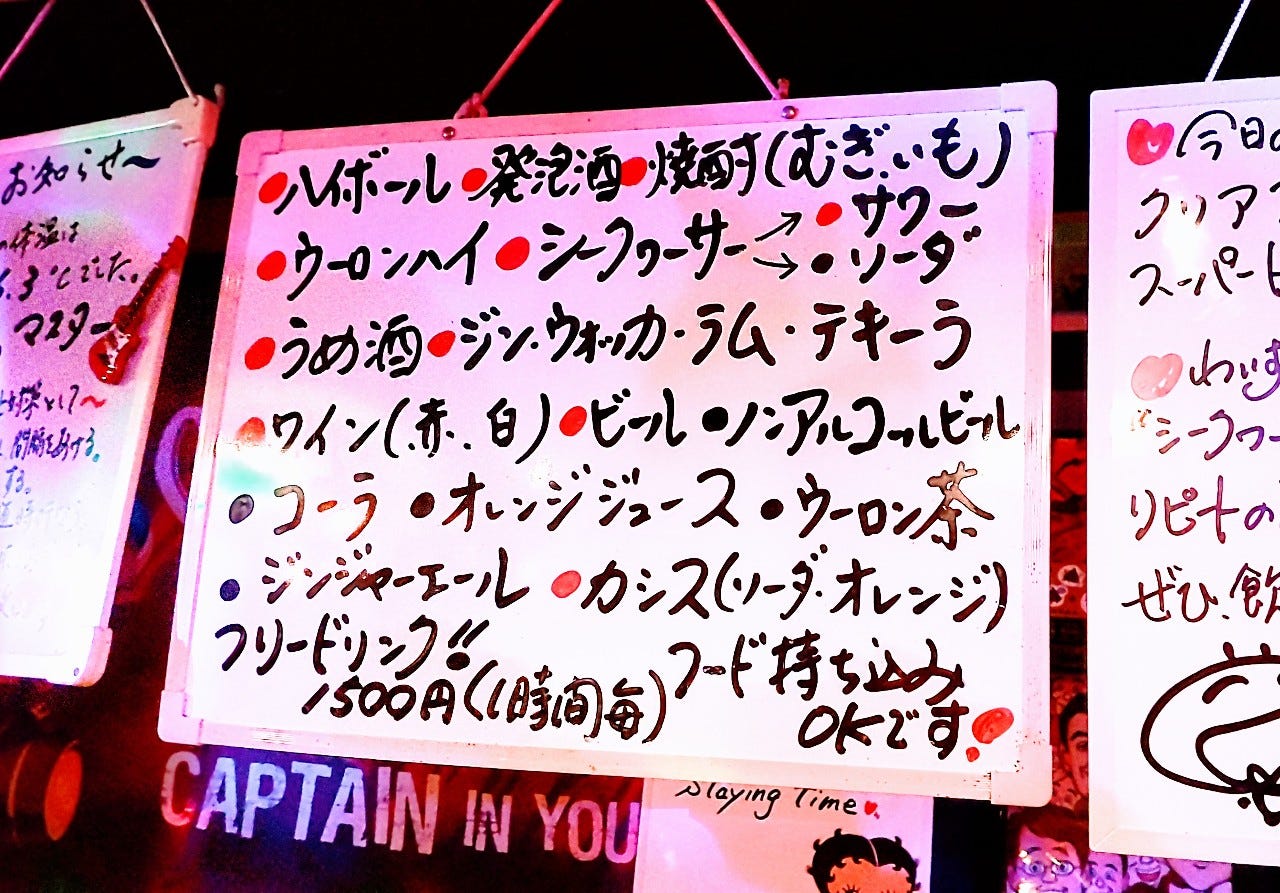 お知らせ～
体温は
.3℃でした。
マスター
ハイボール 発泡酒 焼酎(むぎ.いも)
ウーロンハイ シークヮーサー → サワー
→ ソーダ
うめ酒 ジン・ウォッカ・ラム・テキーラ
ワイン(赤.白) ビール ノンアルコールビール
コーラ オレンジジュース ウーロン茶
ジンジャーエール カシス(ソーダ・オレンジ)
フリードリンク!!
1500円(1時間毎)
フード持ち込み
OKです!
今日の
クリア
スーパー
わいず
"シークワー
リピートの
ぜひ、飲
CAPTAIN IN YOU
Staying Time